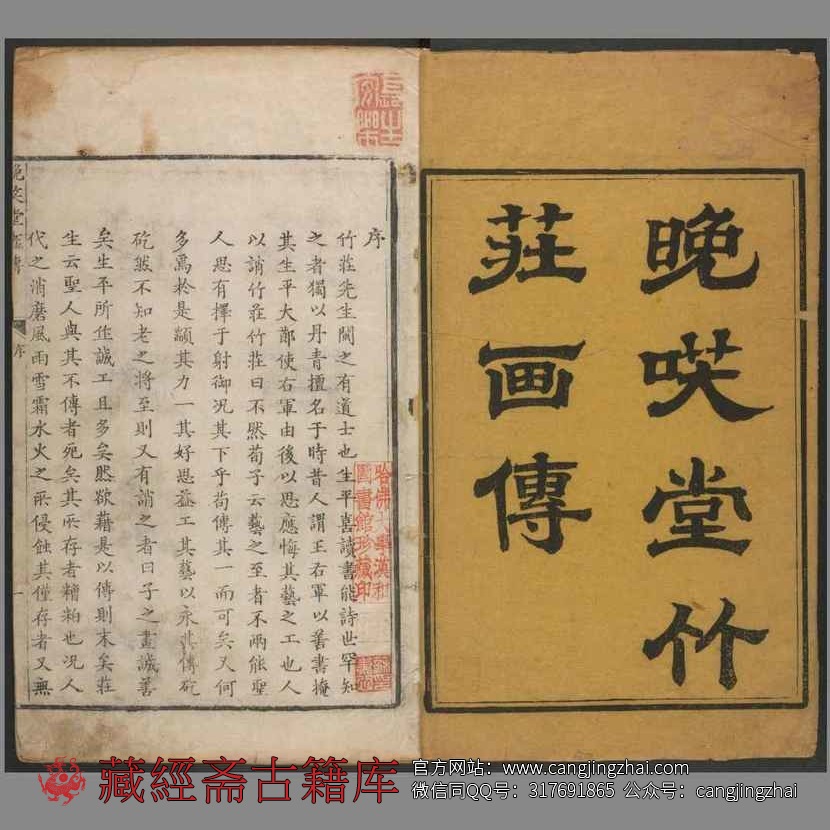 晚咲堂竹
莊画傳
序
竹莊先生閩之有道士也生平喜讀書能詩世罕知
之者獨以丹青擅名于時昔人謂王右軍以善書掩
其生平大鄗使右軍由後以思應悔其藝之工也人
以誚竹莊竹莊曰不然荀子云藝之至者不兩能聖
人思有擇于射御况其下乎苟傳其一而可矣又何
多爲於是顓其力一其好思益工其藝以永其傳矻
矻然不知老之將至則又有誚之者曰子之畫誠善
矣生平所作誠工且多矣然欲藉是以傳則末矣莊
生云聖人與其不傳者死矣其所存者糟粕也况人
代之消磨風雨雪霜水火之所侵蝕其僅存者又無
晚笑堂畫傳
序
一
哈佛大學漢和
圖書館珍藏印
藏經斋古籍库
官方网站：www.cangjingzhai.com
微信同QQ号：317691865 公众号：cangjingzhai